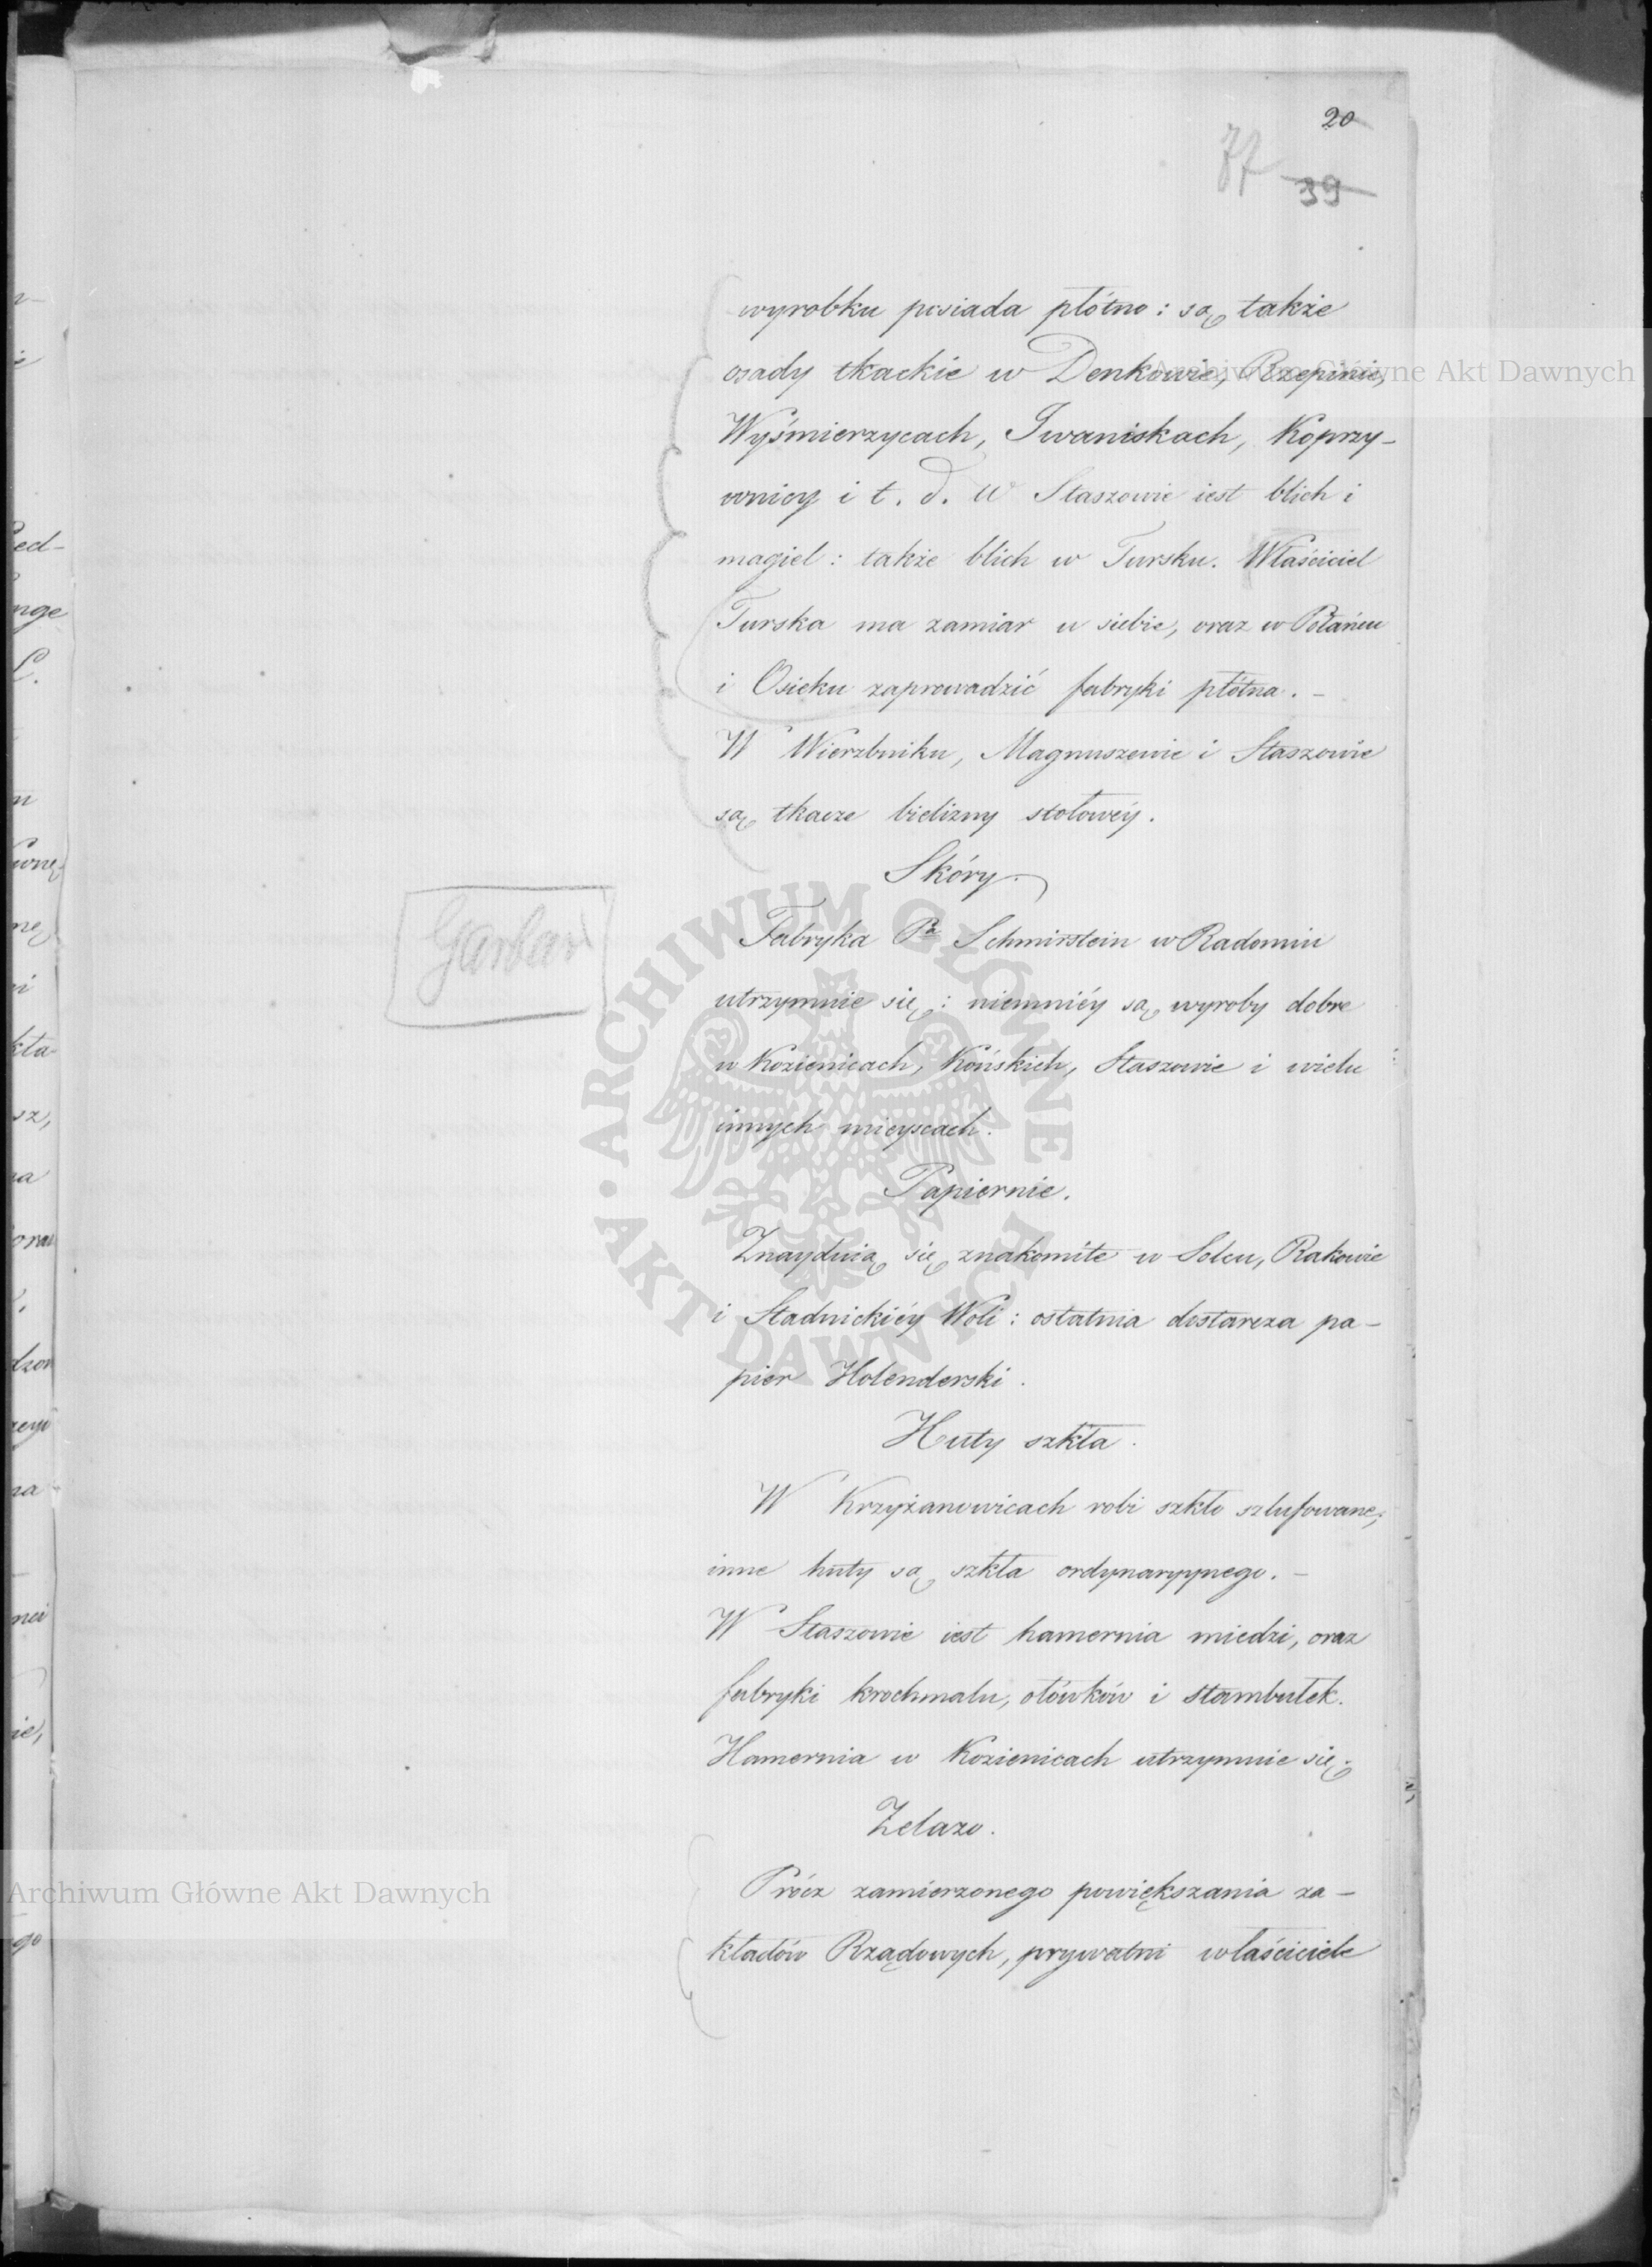 20
77 39
wyrobku posiada płótno: są także
osady tkackie w Denkowie, Rzepinie,
Wyśmierzycach, Iwaniskach, Koprzy-
wnicy i t. d. W Staszowie iest blich i
magiel: także blich w Tursku. Właściciel
Turska ma zamiar u siebie, oraz w Połańcu
i Osieku zaprowadzić fabryki płótna. –
W Wierzbniku, Magnuszewie i Staszowie
są tkacze bielizny stołowéy.
Skóry.
Garbar
Fabryka Pa Schmirstein w Radomiu
utrzymuie się: niemniéy są wyroby dobre
w Kozienicach, Końskich, Staszowie i wielu
innych mieyscach.
Papiernie.
Znayduią się znakomite w Solcu, Rakowie
i Stadnickiéy Woli: ostatnia dostarcza pa-
pier Holenderski.
Huty szkła.
W Krzyżanowicach robi szkło szlufowane,
inne huty są szkła ordynaryynego. –
W Staszowie iest hamernia miedzi, oraz
fabryki krochmalu, ołówków i stambułek.
Hamernia w Kozienicach utrzymuie się.
Zelazo.
Prócz zamierzonego powiększania za-
kładów Rządowych, prywatni właściciele
Archiwum Główne Akt Dawnych
Archiwum Główne Akt Dawnych
ARCHIWUM GŁÓWNE AKT DAWNYCH